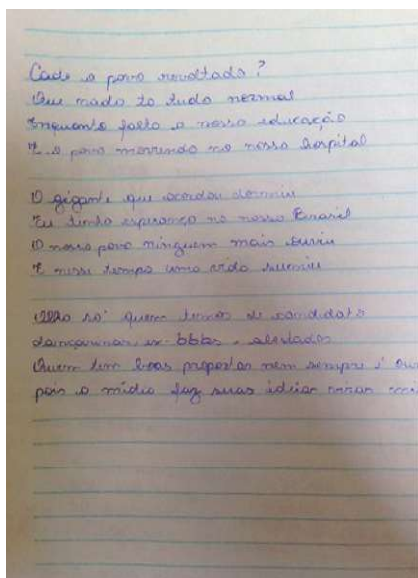 Cade o povo revoltado?
Que nada to tudo normal
Enquanto falta a nossa educação
E o povo morrendo no nosso hospital
O gigante que acordou dormiu
Eu tenho esperança no nosso Brasil
O nosso povo ninguem mais ouviu
E nesse tempo uma vida sumiu
só quem temos de candidato
dançarinas, ex-bbbs,
Quem tem boas propostas nem sempre é
pois a midia faz suas idéias